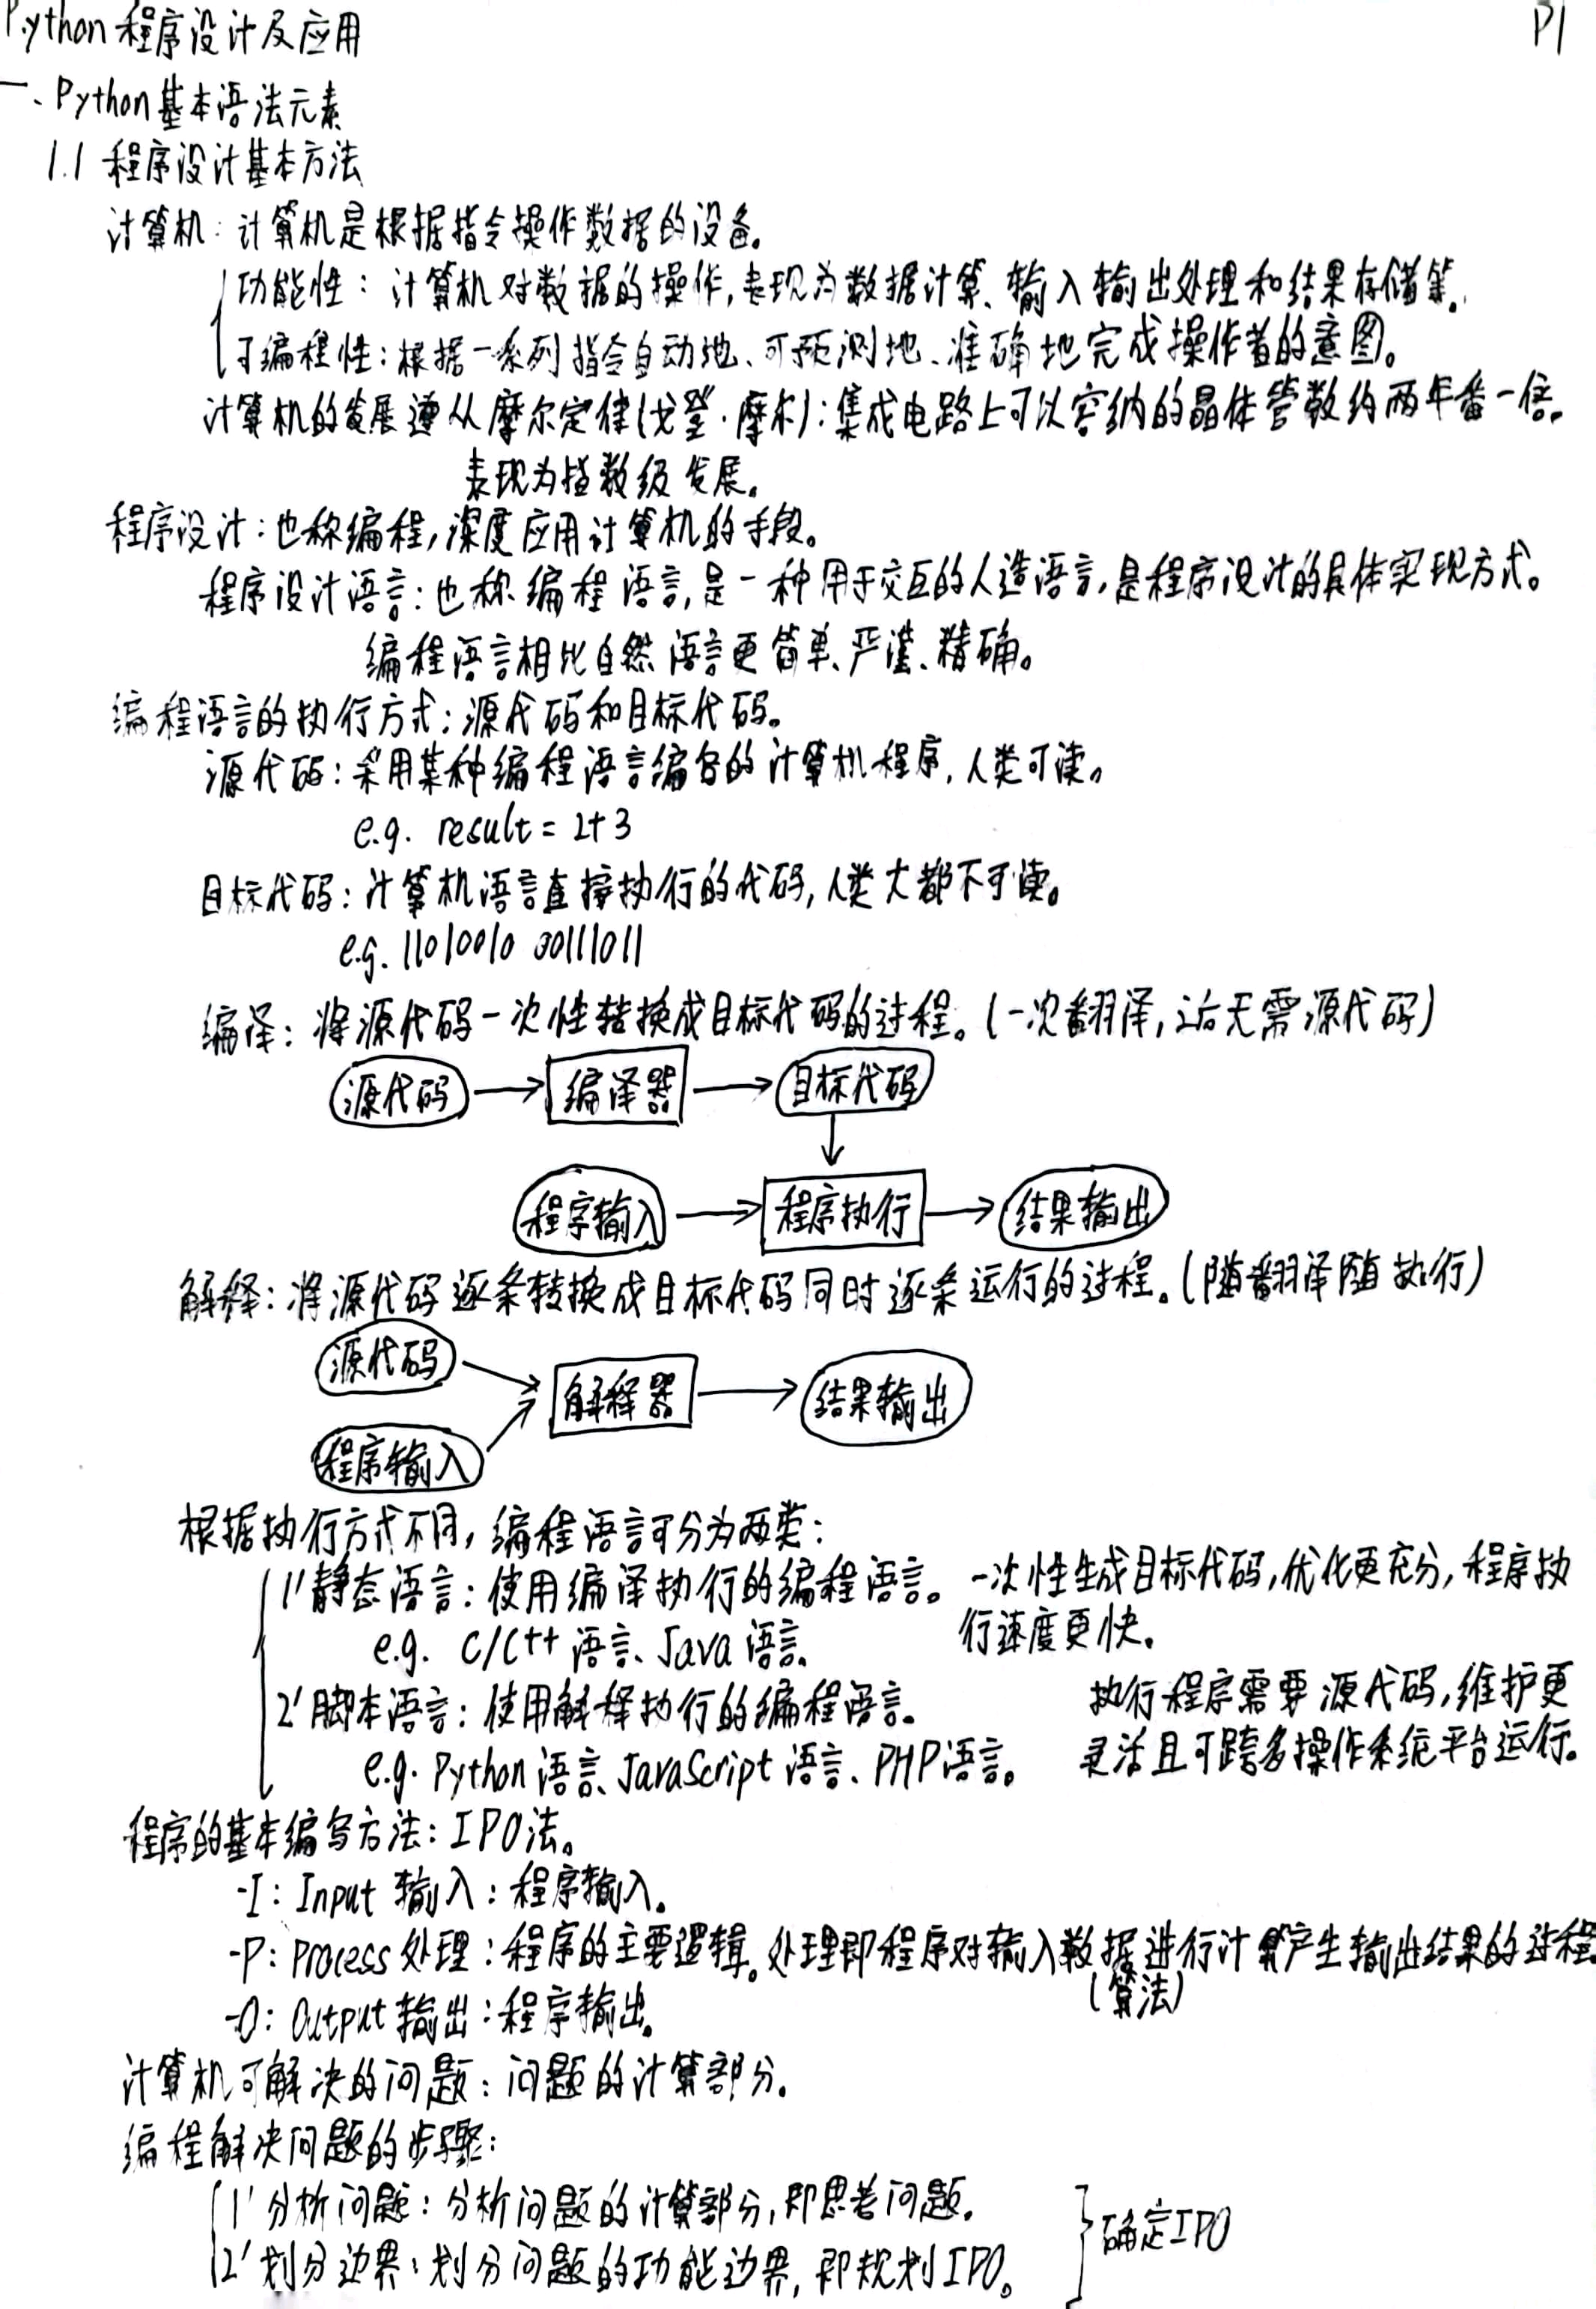 Python程序设计及应用
P1
一、Python基本语法元素
1.1 程序设计基本方法
计算机：计算机是根据指令操作数据的设备。
功能性：计算机对数据的操作,表现为数据计算、输入输出处理和结果存储等.
可编程性：根据一系列指令自动地、可预测地、准确地完成操作者的意图。
计算机的发展遵从摩尔定律(戈登·摩尔)：集成电路上可以容纳的晶体管数约两年番一倍。
表现为指数级发展。
程序设计：也称编程,深度应用计算机的手段。
程序设计语言：也称编程语言,是一种用于交互的人造语言,是程序设计的具体实现方式。
编程语言相比自然语言更简单、严谨、精确。
编程语言的执行方式：源代码和目标代码。
源代码：采用某种编程语言编写的计算机程序,人类可读。
e.g. result = 2+3
目标代码：计算机语言直接执行的代码,人类大都不可读。
e.g. 11010010 00111011
编译：将源代码一次性转换成目标代码的过程。(一次翻译,之后无需源代码)
源代码 → 编译器 → 目标代码
↓
程序输入 → 程序执行 → 结果输出
解释：将源代码逐条转换成目标代码同时逐条运行的过程。(随翻译随执行)
源代码
解释器 → 结果输出
程序输入
根据执行方式不同,编程语言可分为两类：
1' 静态语言：使用编译执行的编程语言。 一次性生成目标代码,优化更充分,程序执
e.g. C/C++语言、Java语言. 行速度更快.
2' 脚本语言：使用解释执行的编程语言。 执行程序需要源代码,维护更
e.g. Python语言、JavaScript语言、PHP语言。 灵活且可跨多操作系统平台运行。
程序的基本编写方法：IPO法。
-I：Input 输入：程序输入.
-P：Process 处理：程序的主要逻辑。处理即程序对输入数据进行计算产生输出结果的过程.
(算法)
-O：Output 输出：程序输出。
计算机可解决的问题：问题的计算部分.
编程解决问题的步骤：
1' 分析问题：分析问题的计算部分,即思考问题.
确定IPO
2' 划分边界：划分问题的功能边界,即规划IPO。